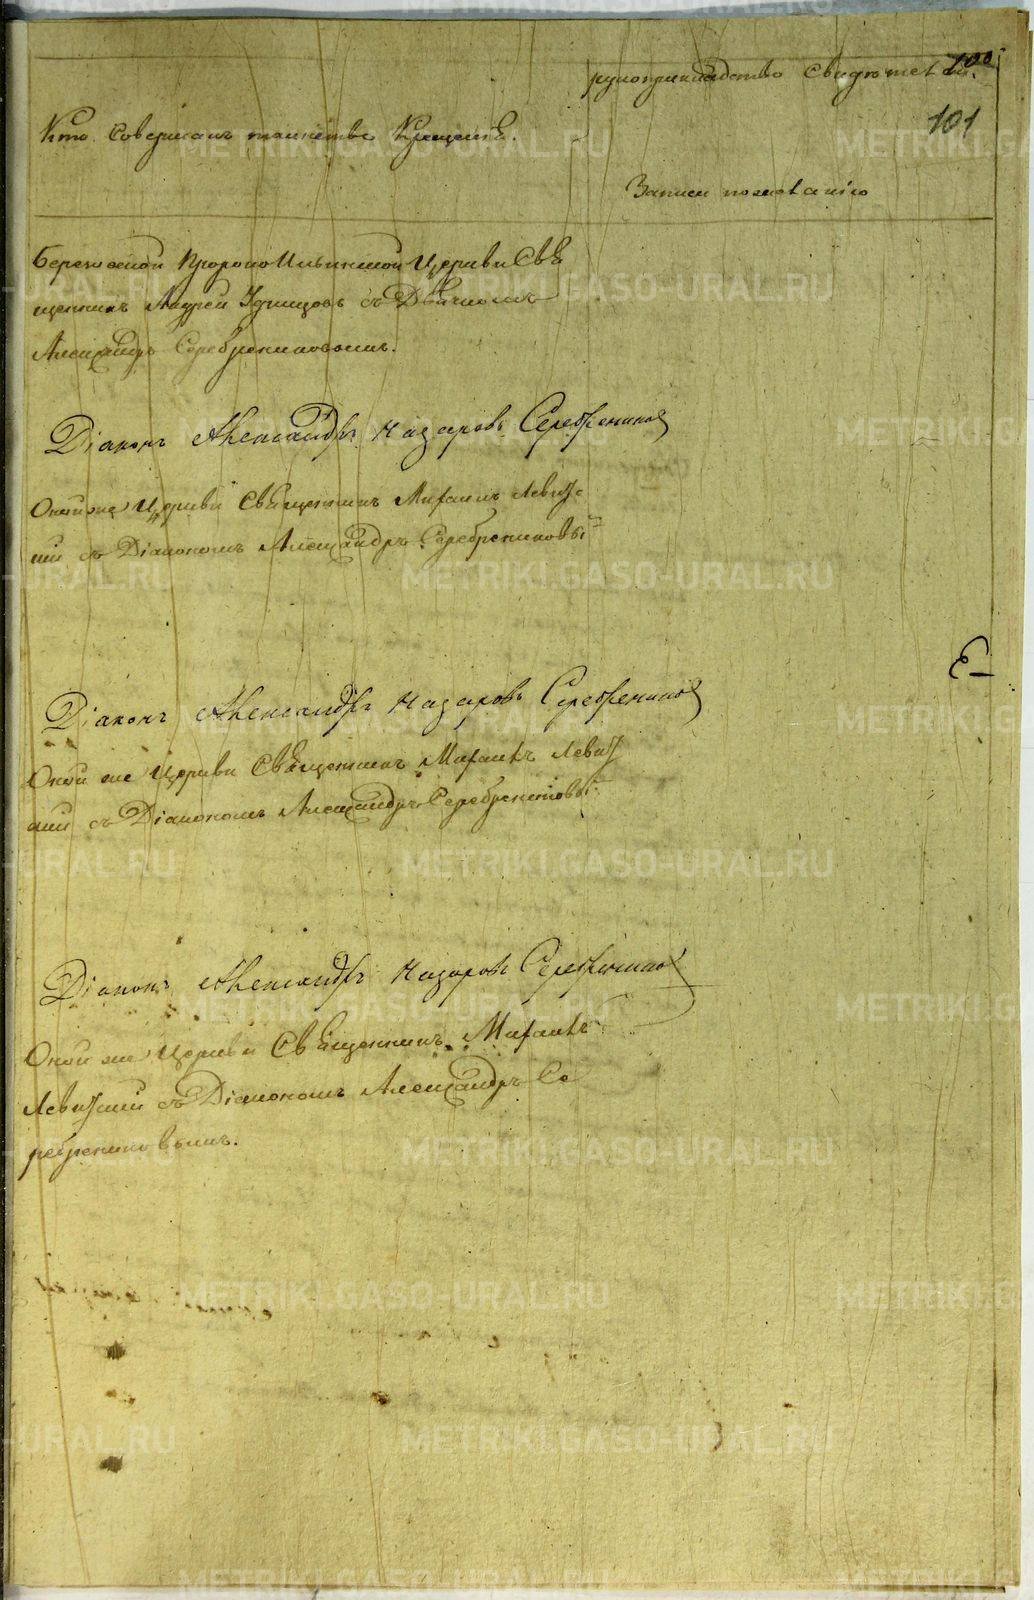 рукоприкладство Свидетелей.
100
101
Кто Совершалъ таинство Крещенiя.
Записи пожеланiю
Березовской Пророкоильинской Церкви Свя
щенникъ Андрей Удинцовъ съ Дiякономъ
Александръ Серебрениковымъ.
Дiаконъ Александръ Назаровъ Серебрениковъ
Оной же Церкви Священникъ Михаилъ Левит
скiй съ Дiакономъ Александръ Серебрениковы
Дiаконъ Александръ Назаровъ Серебрениковъ
Оной же Церкви Священникъ Михаилъ Левит
скiй съ Дiакономъ Александръ Серебрениковы
Дiаконъ Александръ Назаровъ Серебрениковъ
Оной же Церкви Священникъ Михаилъ
Левитскiй съ Дiакономъ Александръ Се
ребрениковымъ.
METRIKI.GASO-URAL.RU